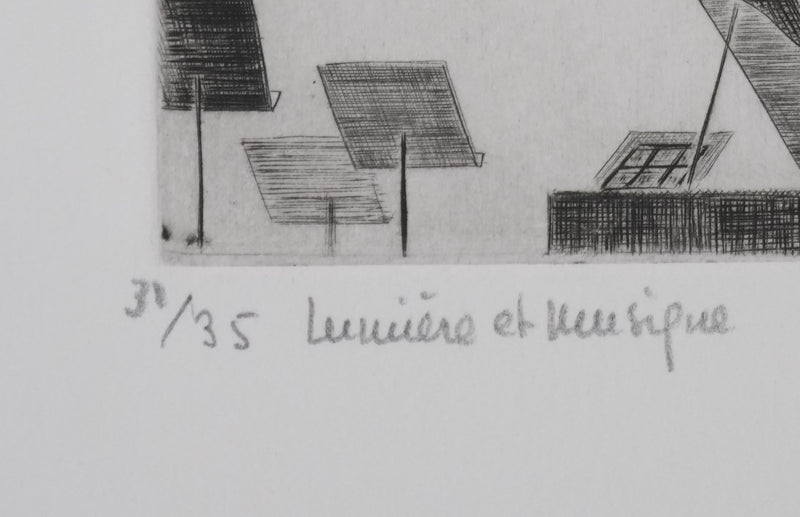 /35 Lumière et Musique